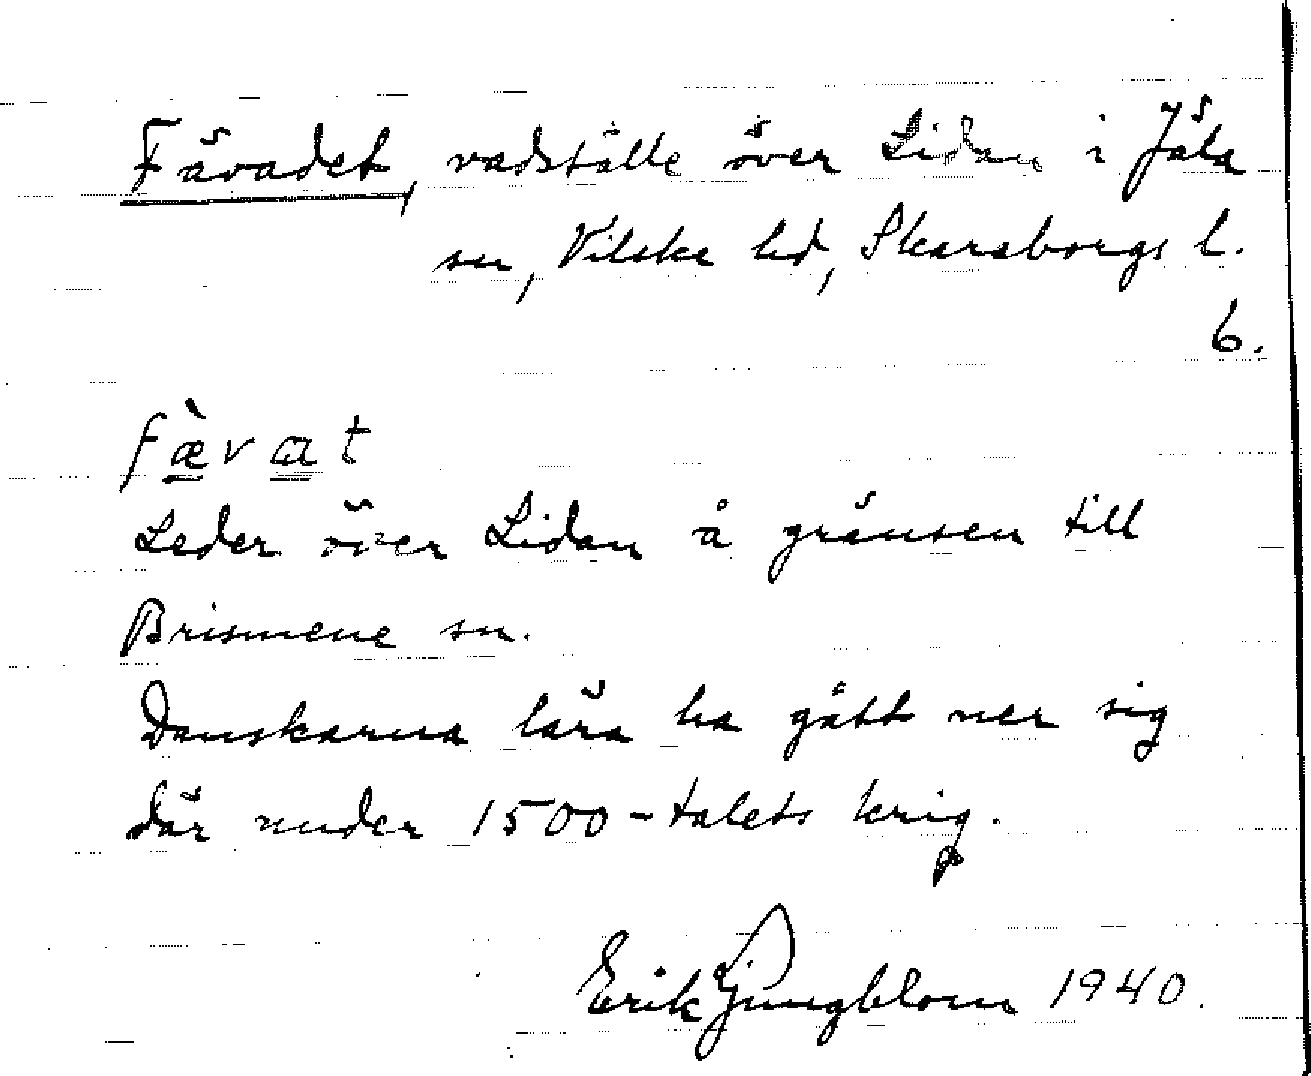 Fävadet, vadställe över Lidan i Jäla
sn, Vilske hd, Skaraborgs l.
6.
fæ̀vat
Leder över Lidan å gränsen till
Brismene sn.
Danskarna lära ha gått ner sig
där under 1500-talets krig.
Erik Ljungblom 1940.